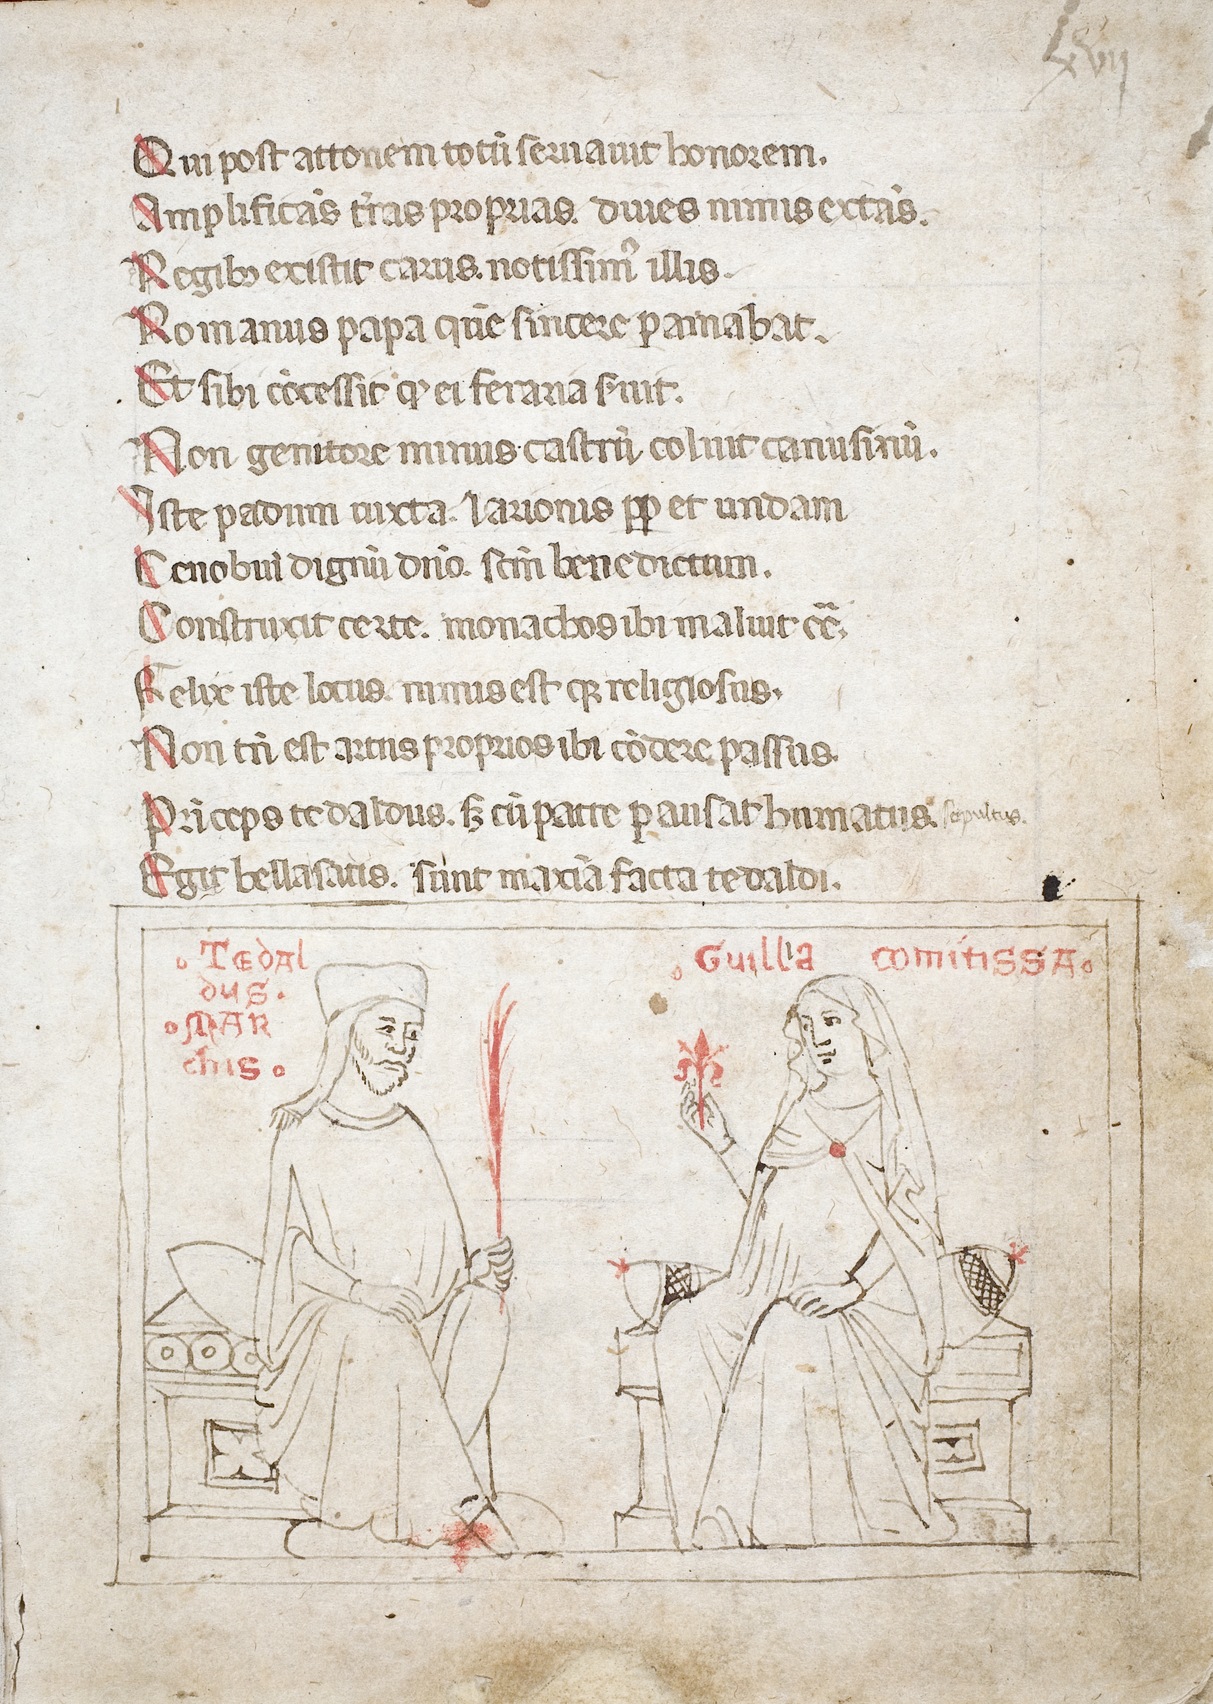 Lxvij
Qui post attonem totū seruauit honorem.
Amplificās t̄ras proprias. diues nimis extās.
Regibꝫ existit carus. notissimꝰ illis.
Romanus papa quē sincere ꝑamabat.
Et sibi cōcessit ꝙ ei feraria s̄uit.
Non genitore minus castrū coluit canusinū.
Iste padum iuxta. larionis ꝓp et undam
Cenobiū dignū dn̄o. sc̄m benedictum.
Construxit certe. monachos ibi maluit eē.
Felix iste locus. nimis est qꝫ religiosus.
Non tn̄ est artus proprios ibi cōdere passus.
Prīceps tedaldus. sꝫ cū patre pausat humatus. sepultus.
Egit bella satis. sunt maxīa facta tedaldi.
Tedal
dus.
Mar
chis
Guilla comitissa